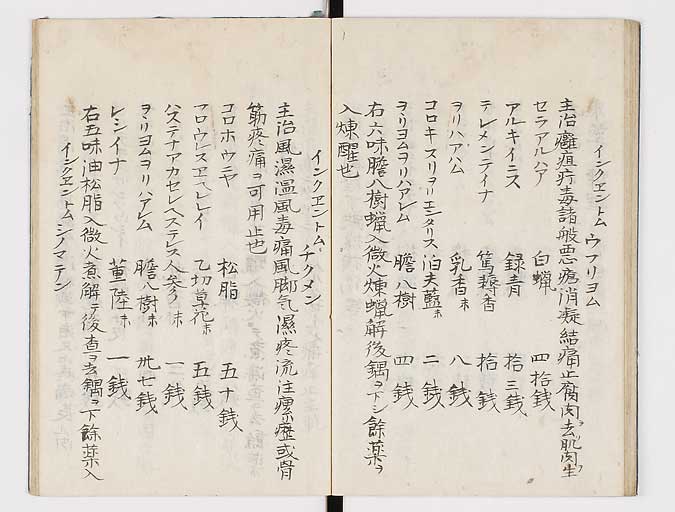 インクヱントム ウフリヨム
主治癰疽疔毒諸般悪瘡消凝結痛止腐肉ヲ去肌肉ヲ生
セラアルハア 白蠟 四拾銭
アルキイニス 録青 拾三銭
テレメンテイナ 篤耨香 拾銭
ヲリハアハム 乳香ホ 八銭
コロキスリヲーエンタリス 泊夫藍ホ 二銭
ヲヽリヨムヲリハアレム 膽八樹 四銭
右六味膽八樹蠟入微火煉蠟解後鍋ヲ下シ餘薬ヲ
入煉醒也
インクヱントム チクメン
主治風濕温風毒痛風脚气濕疼流注瘰癧或骨
筋疼痛ヲ可用止也
コロホウニヤ 松脂 五十銭
フロウレスヱヘレイ 乙切草花ホ 五銭
ハステナアカセレヘステレス 人参ホ 一銭
ヲヽリヨムヲリハアレム 膽八樹ホ 卅七銭
レシイナ 薫陸ホ 一銭
右五味油松脂入微火煮解テ後査ヲ去鍋ヲ下餘薬入
インクヱントム シノマテン